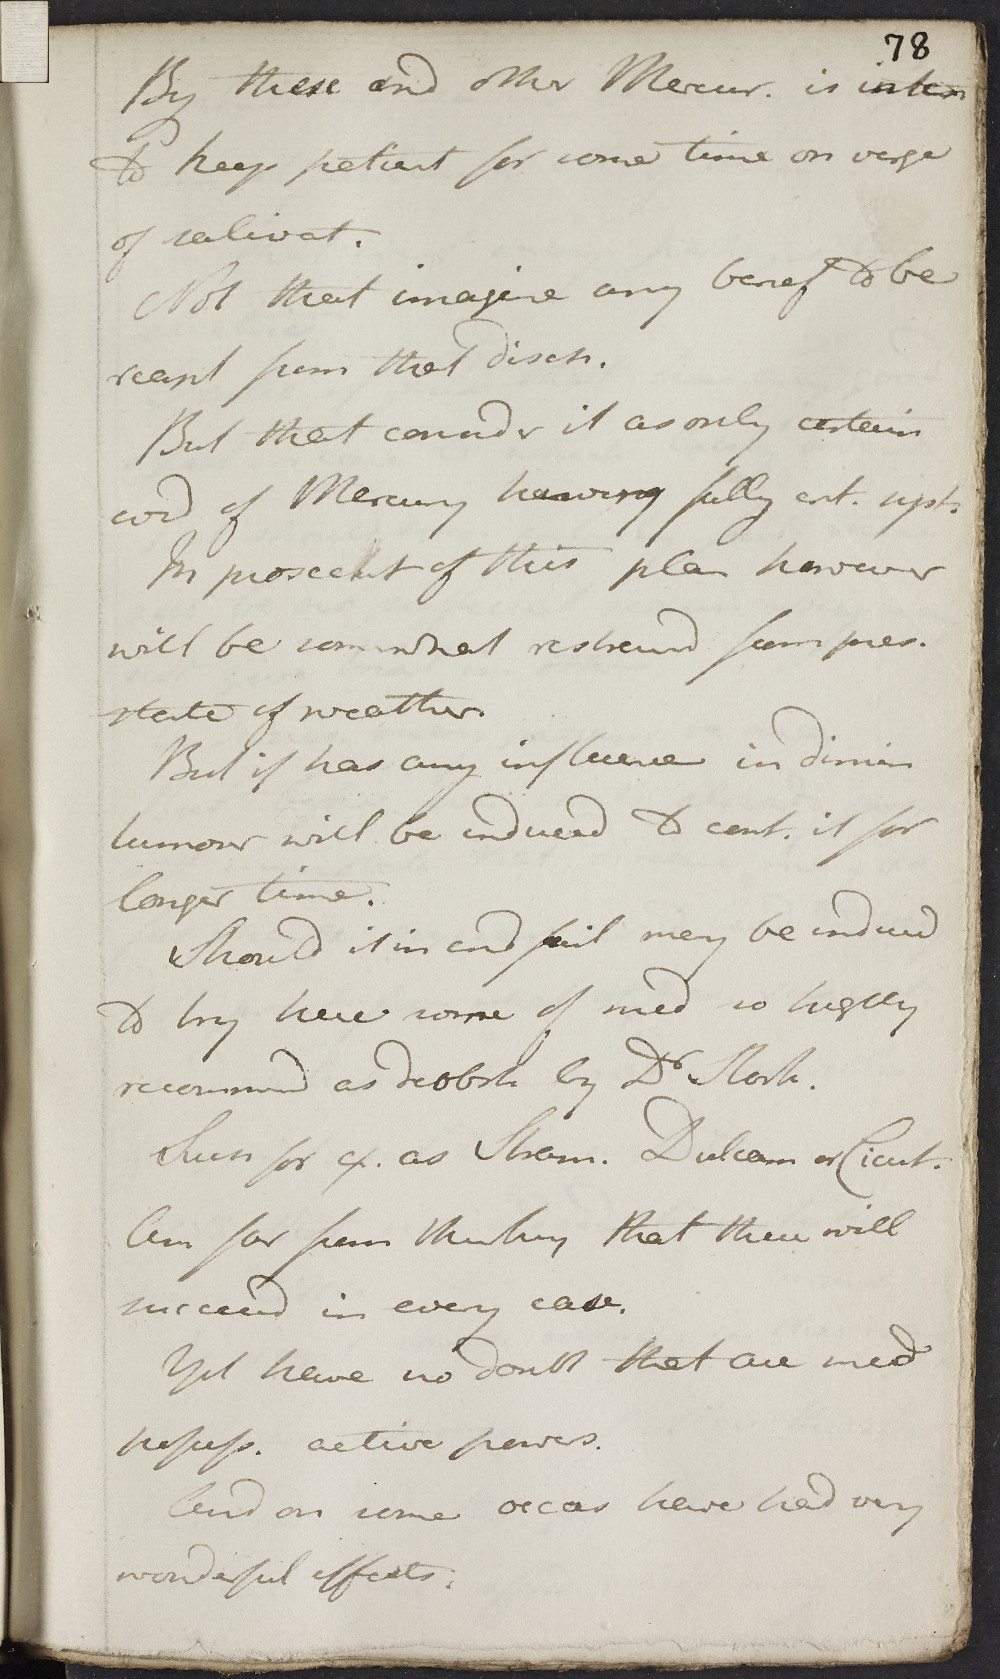 78
By these and other Mercur. is inten
to keep patient for some time on verge
of salivat.
Not that imagine any benef to be
reapt from that disch.
But that consider it as only certain
evid of Mercury having fully ent. syst.
In prosecut of this plan however
will be somewhat restraind from pres.
state of weather.
But if has any influence in dimin
tumour will be induced to cont. it for
longer time.
Should it in end fail may be induced
to try here some of med so highly
recommend as deobstr by Dr Stork.
Such for ex. as Stram. Dulcam or Cicut.
Am far from thinking that these will
succeed in every case.
Yet have no doubt that are med
possess. active powers.
And on some occas have had very
wonderful effects.